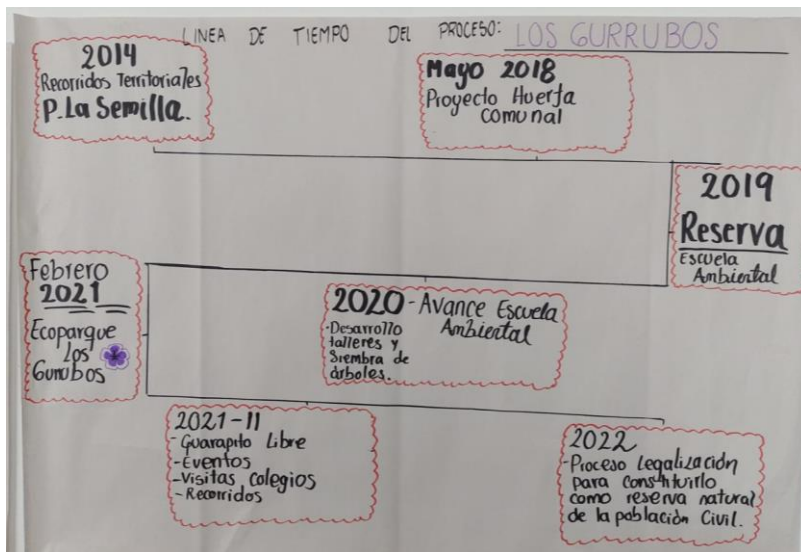 LINEA DE TIEMPO DEL PROCESO: LOS GURRUBOS
2014
Recorridos Territoriales
P. La Semilla.
Mayo 2018
Proyecto Huerta
Comunal
2019
Reserva
Escuela
Ambiental
2020 - Avance Escuela
Ambiental
-Desarrollo
talleres y
Siembra de
árboles.
Febrero
2021
Ecoparque
Los
Gurrubos
2021-II
- Guarapito Libre
- Eventos
- Visitas Colegios
- Recorridos
2022
-Proceso Legalización
para constituirlo
como reserva natural
de la población Civil.